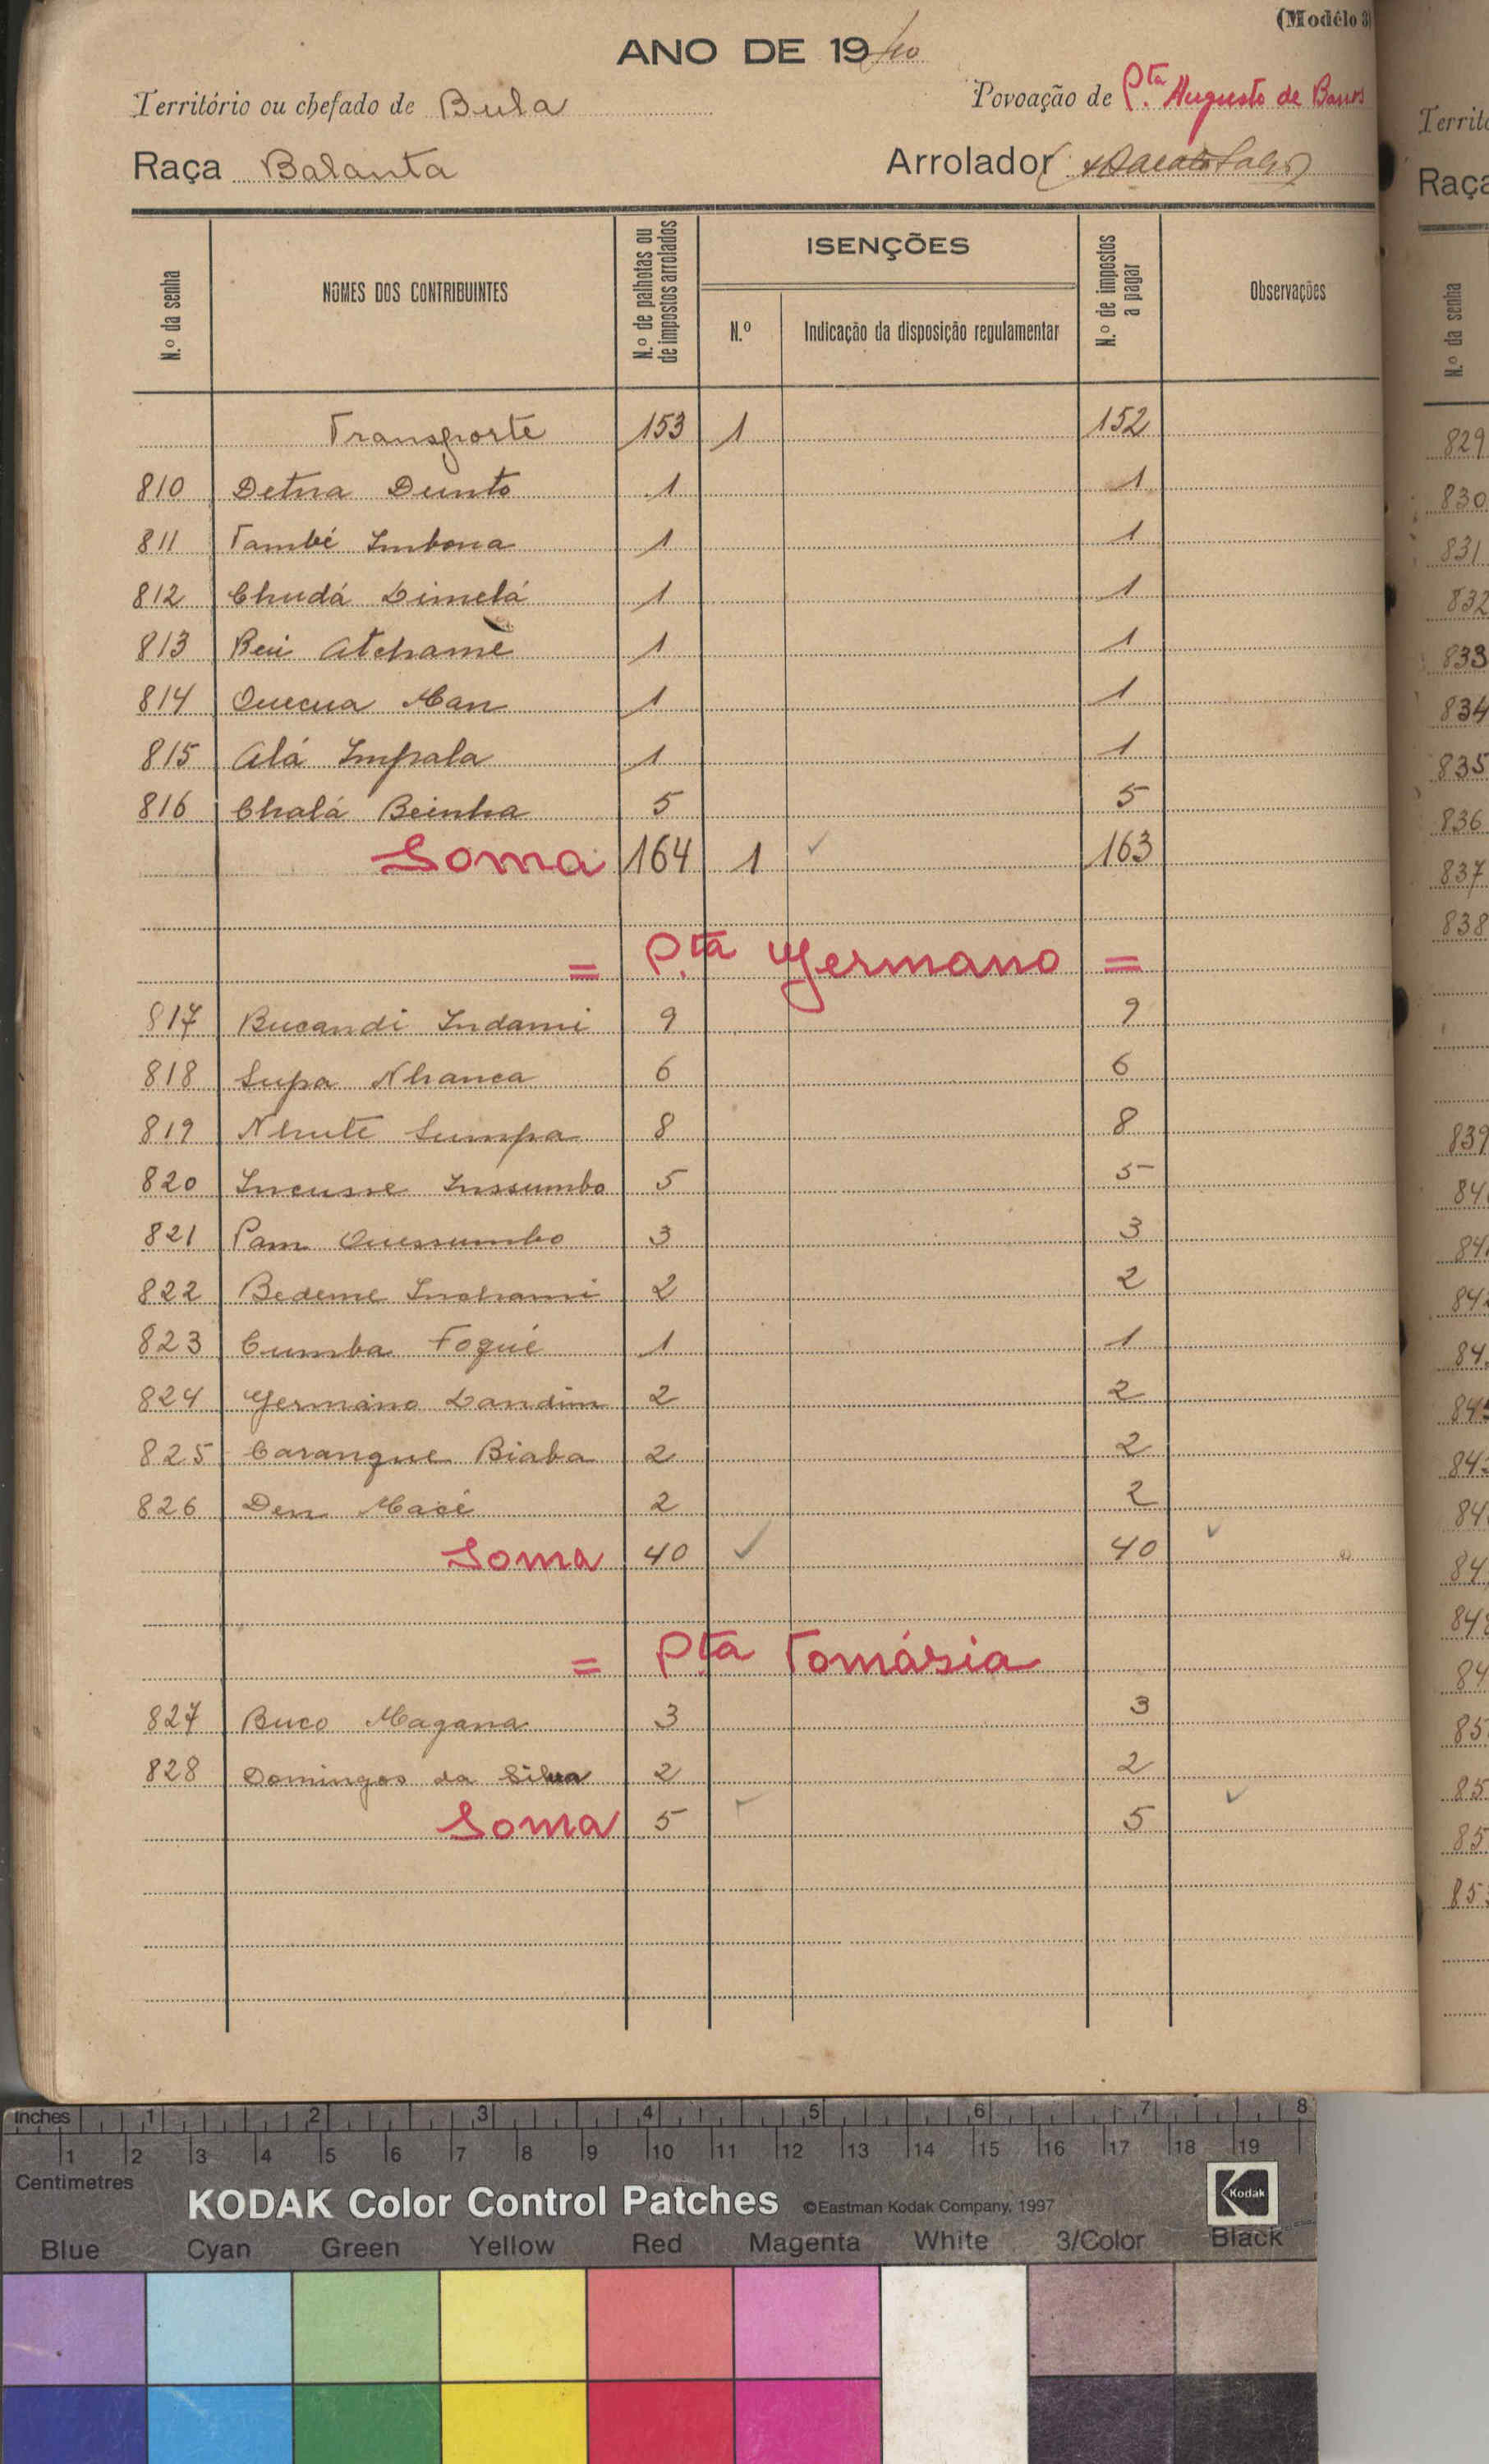 (Modêlo 3)
ANO DE 1940
Território ou chefado de Bula Povoação de P.ta Augusto de Barros
Raça Balanta Arrolador
N.º da senha NOMES DOS CONTRIBUINTES N.º de palhotas ou de impostos arrolados ISENÇÕES N.º Indicação da disposição regulamentar N.º de impostos a pagar Observações
Transporte 153 1 152
810 Detna Dunto 1 1
811 També Imbona 1 1
812 Chudá Dimelá 1 1
813 Bei Atchame 1 1
814 Quecua Man 1 1
815 Alá Impala 1 1
816 Chalá Beinha 5 5
Soma 164 1 163
= P.ta Germano =
817 Bucandi Indami 9 9
818 Supa Nhanca 6 6
819 Nhute Sumpa 8 8
820 Incusse Inssumbo 5 5
821 Pam Quessumbo 3 3
822 Bedeme 2 2
823 Cumba Foqué 1 1
824 Germano Landim 2 2
825 Carangue Biaba 2 2
826 Den Macé 2 2
Soma 40 40
= Pta Tomásia
827 Buco Magana 3 3
828 Domingos da Silva 2 2
Soma 5 5
Raça
N.º da senha
829
830
831
832
833
834
835
836
837
838
839
inches 1 2 3 4 5 6 7 8
1 2 3 4 5 6 7 8 9 10 11 12 13 14 15 16 17 18 19
Centimetres
KODAK Color Control Patches ©Eastman Kodak Company, 1997 Kodak
Blue Cyan Green Yellow Red Magenta White 3/Color Black